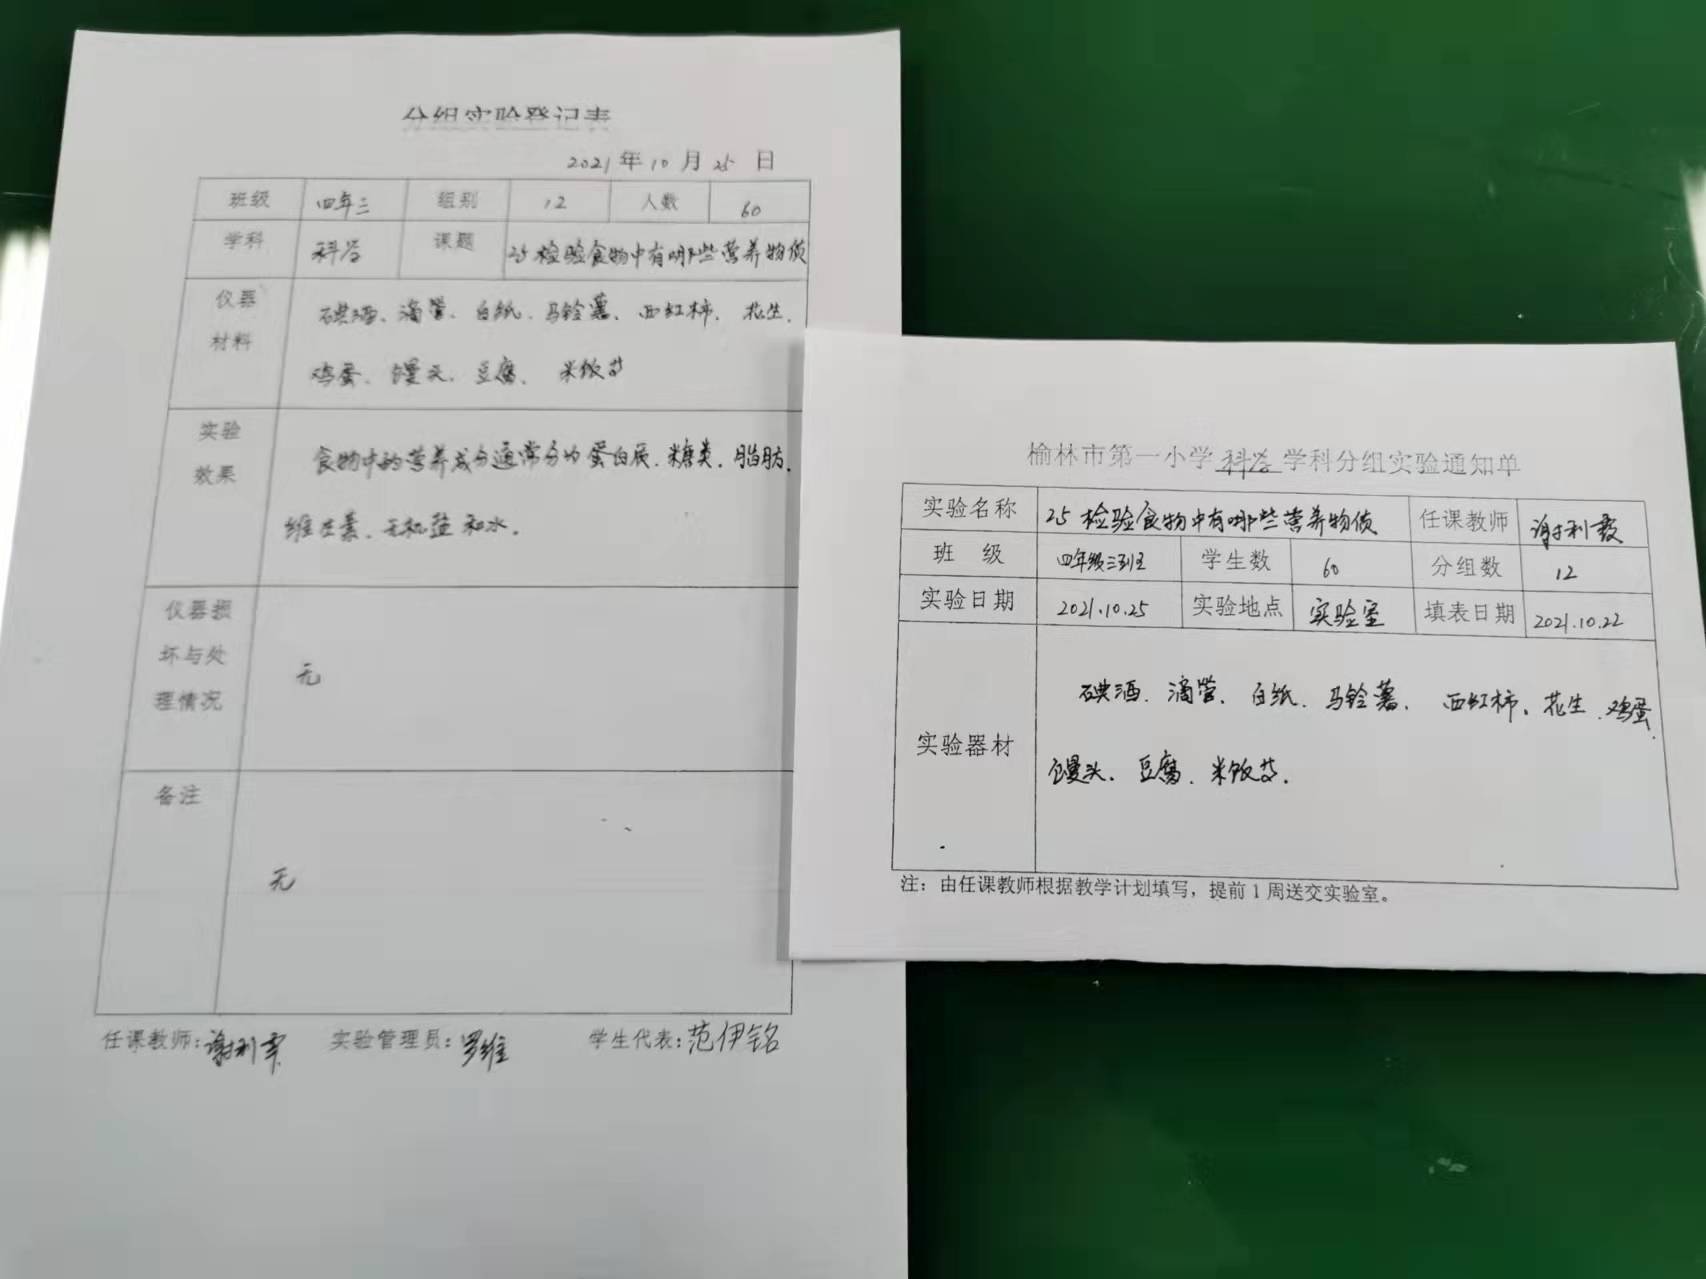 分组实验登记表
2021年10月25日
班级 四年三 组别 12 人数 60
学科 科学 课题 25检验食物中有哪些营养物质
仪器材料
碘酒、滴管、白纸、马铃薯、西红柿、花生、
鸡蛋、馒头、豆腐、米饭等
实验效果
食物中的营养成分通常分为蛋白质、糖类、脂肪、
维生素、无机盐和水。
仪器损坏与处理情况
无
备注
无
任课教师：谢利 实验管理员：罗维 学生代表：范伊铭
榆林市第一小学科学学科分组实验通知单
实验名称 25检验食物中有哪些营养物质 任课教师 谢利
班级 四年级三班 学生数 60 分组数 12
实验日期 2021.10.25 实验地点 实验室 填表日期 2021.10.22
实验器材
碘酒、滴管、白纸、马铃薯、西红柿、花生、鸡蛋、
馒头、豆腐、米饭等.
注：由任课教师根据教学计划填写，提前1周送交实验室。